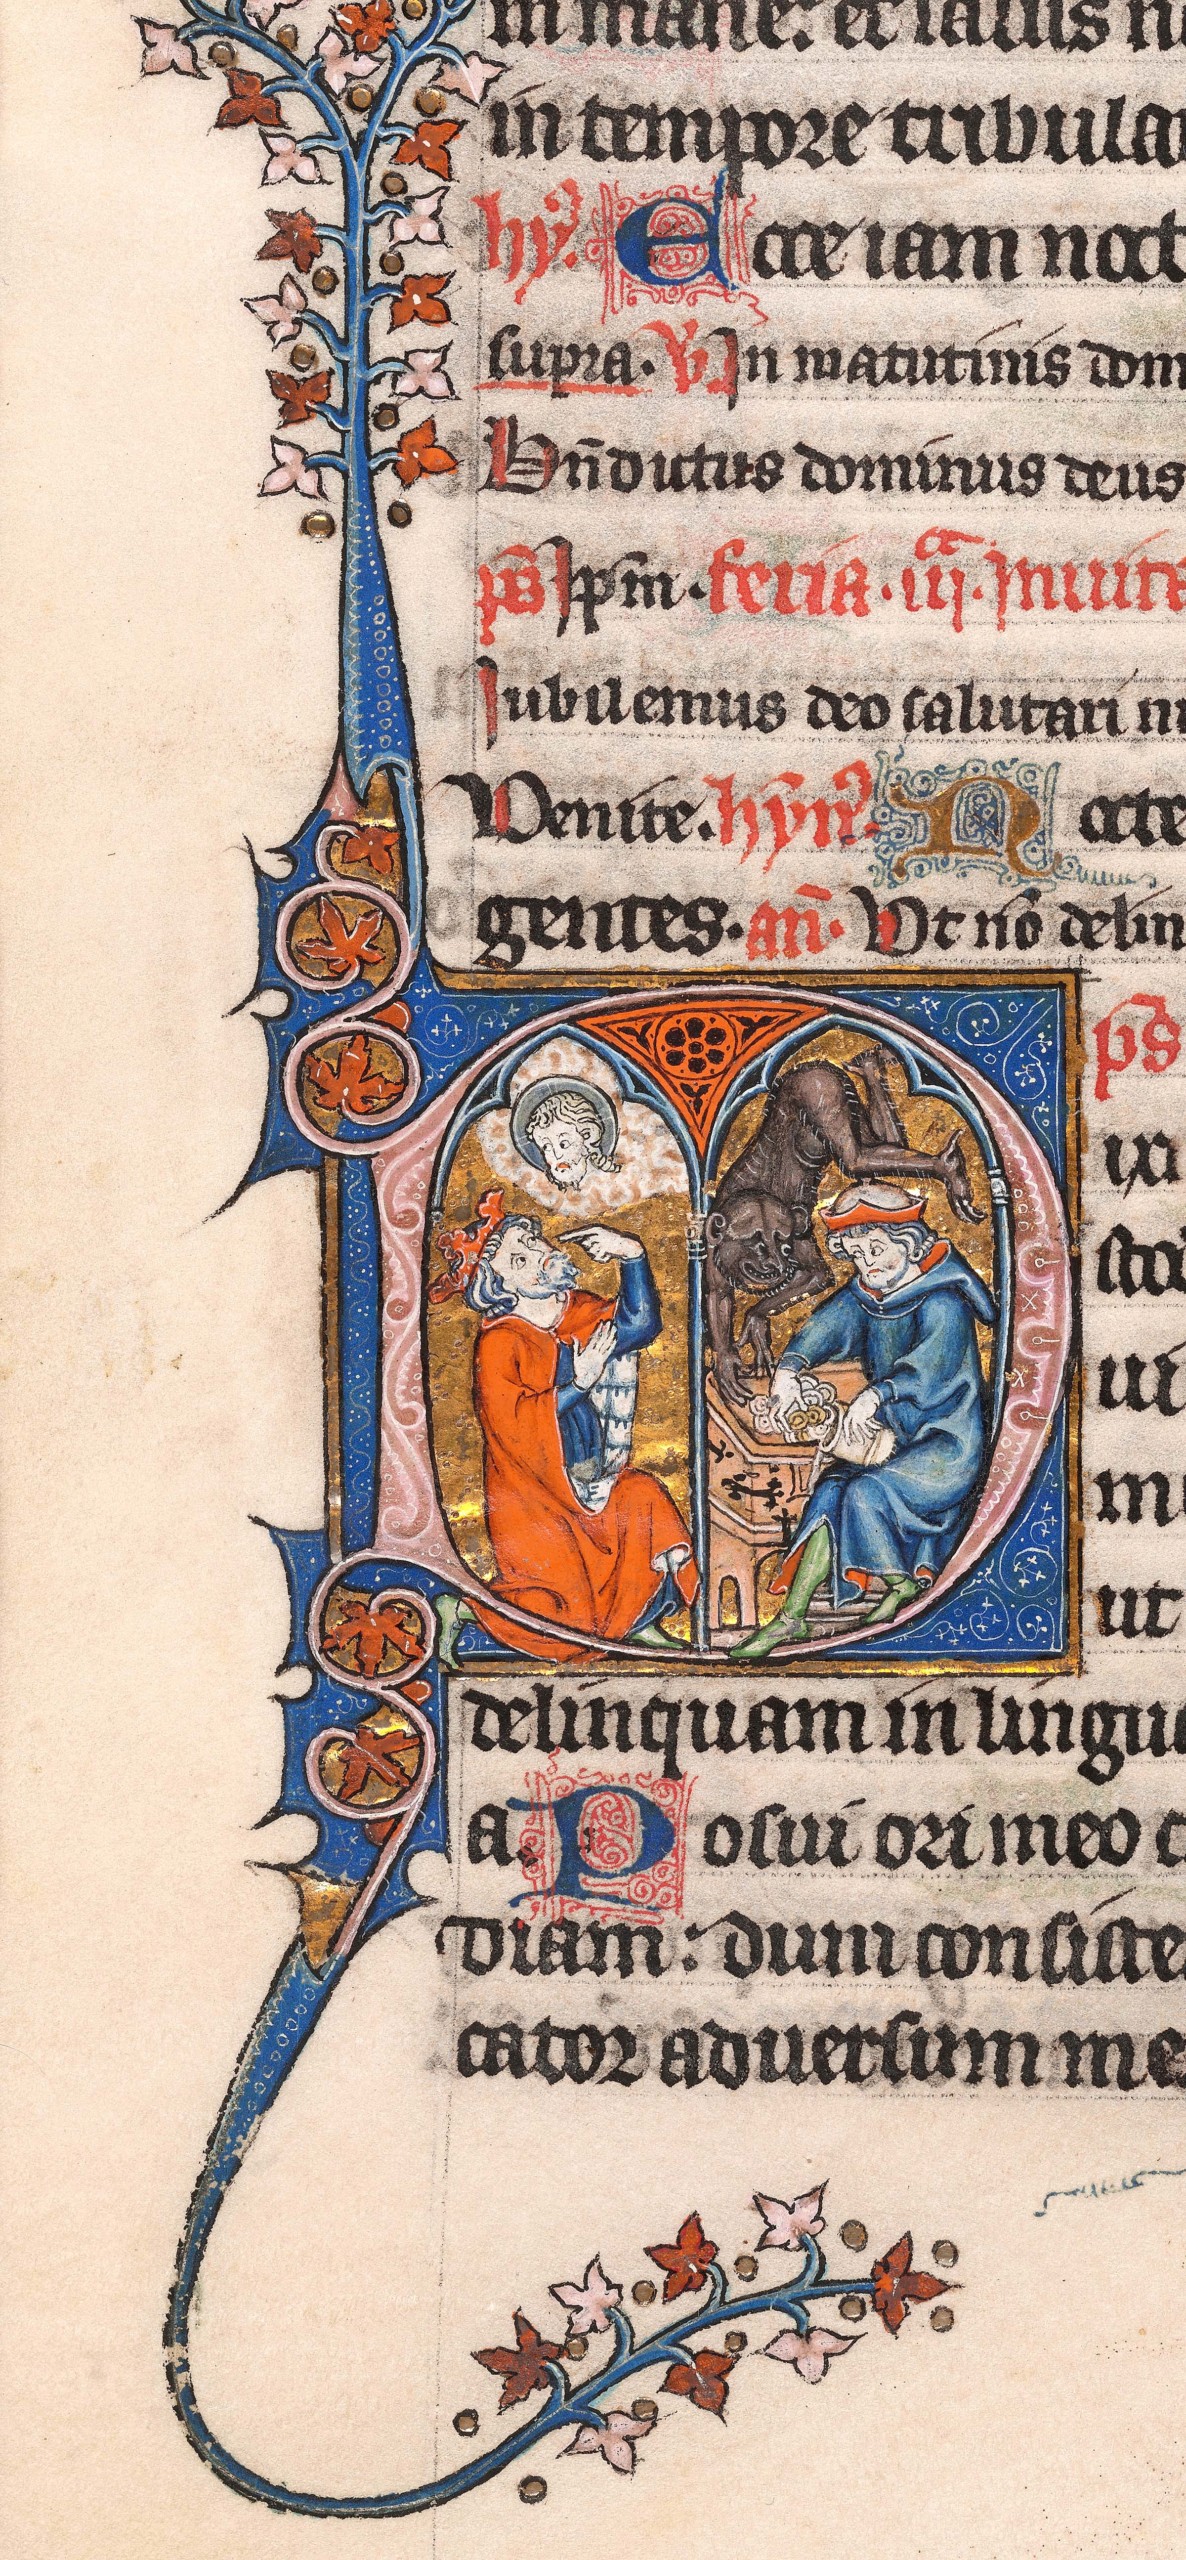 in mane. et saluus m
in tempore tribula
hy᷒. Ecce iam noct
supra. V̄. In matutinis dom
Bn̄dictus dominus deus
ps̄ Ip̄m. feria. iijᵃ. Inuita
Iubilemus deo salutari n
Venite. hȳn᷒. Nocte
gentes. an̄. Vt nō delin
D ps̄
ixi
cato
ui
m
ut
delinquam in lingua
a. Posui ori meo c
diam: dum consiste
cator aduersum me